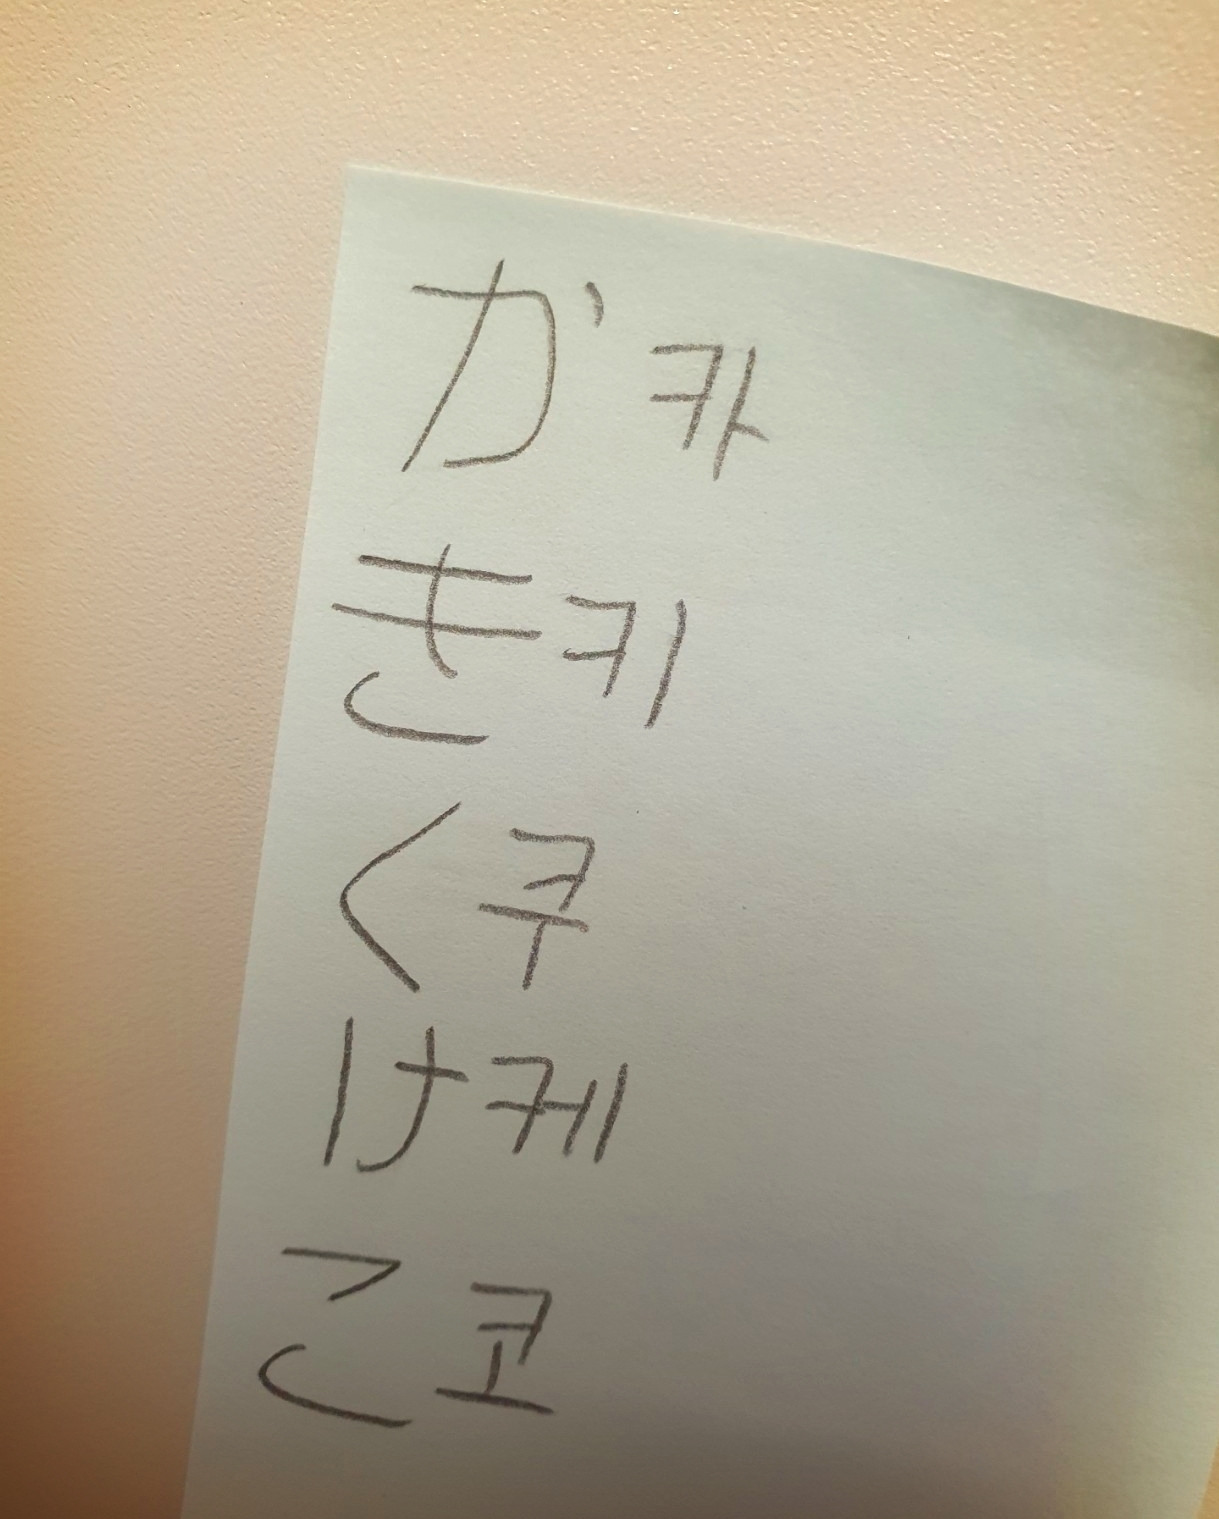 か 카
き 키
く 쿠
け 케
こ 코